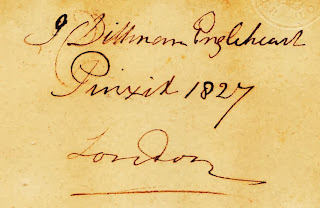 J Dillman Engleheart
Pinxit 1827
London